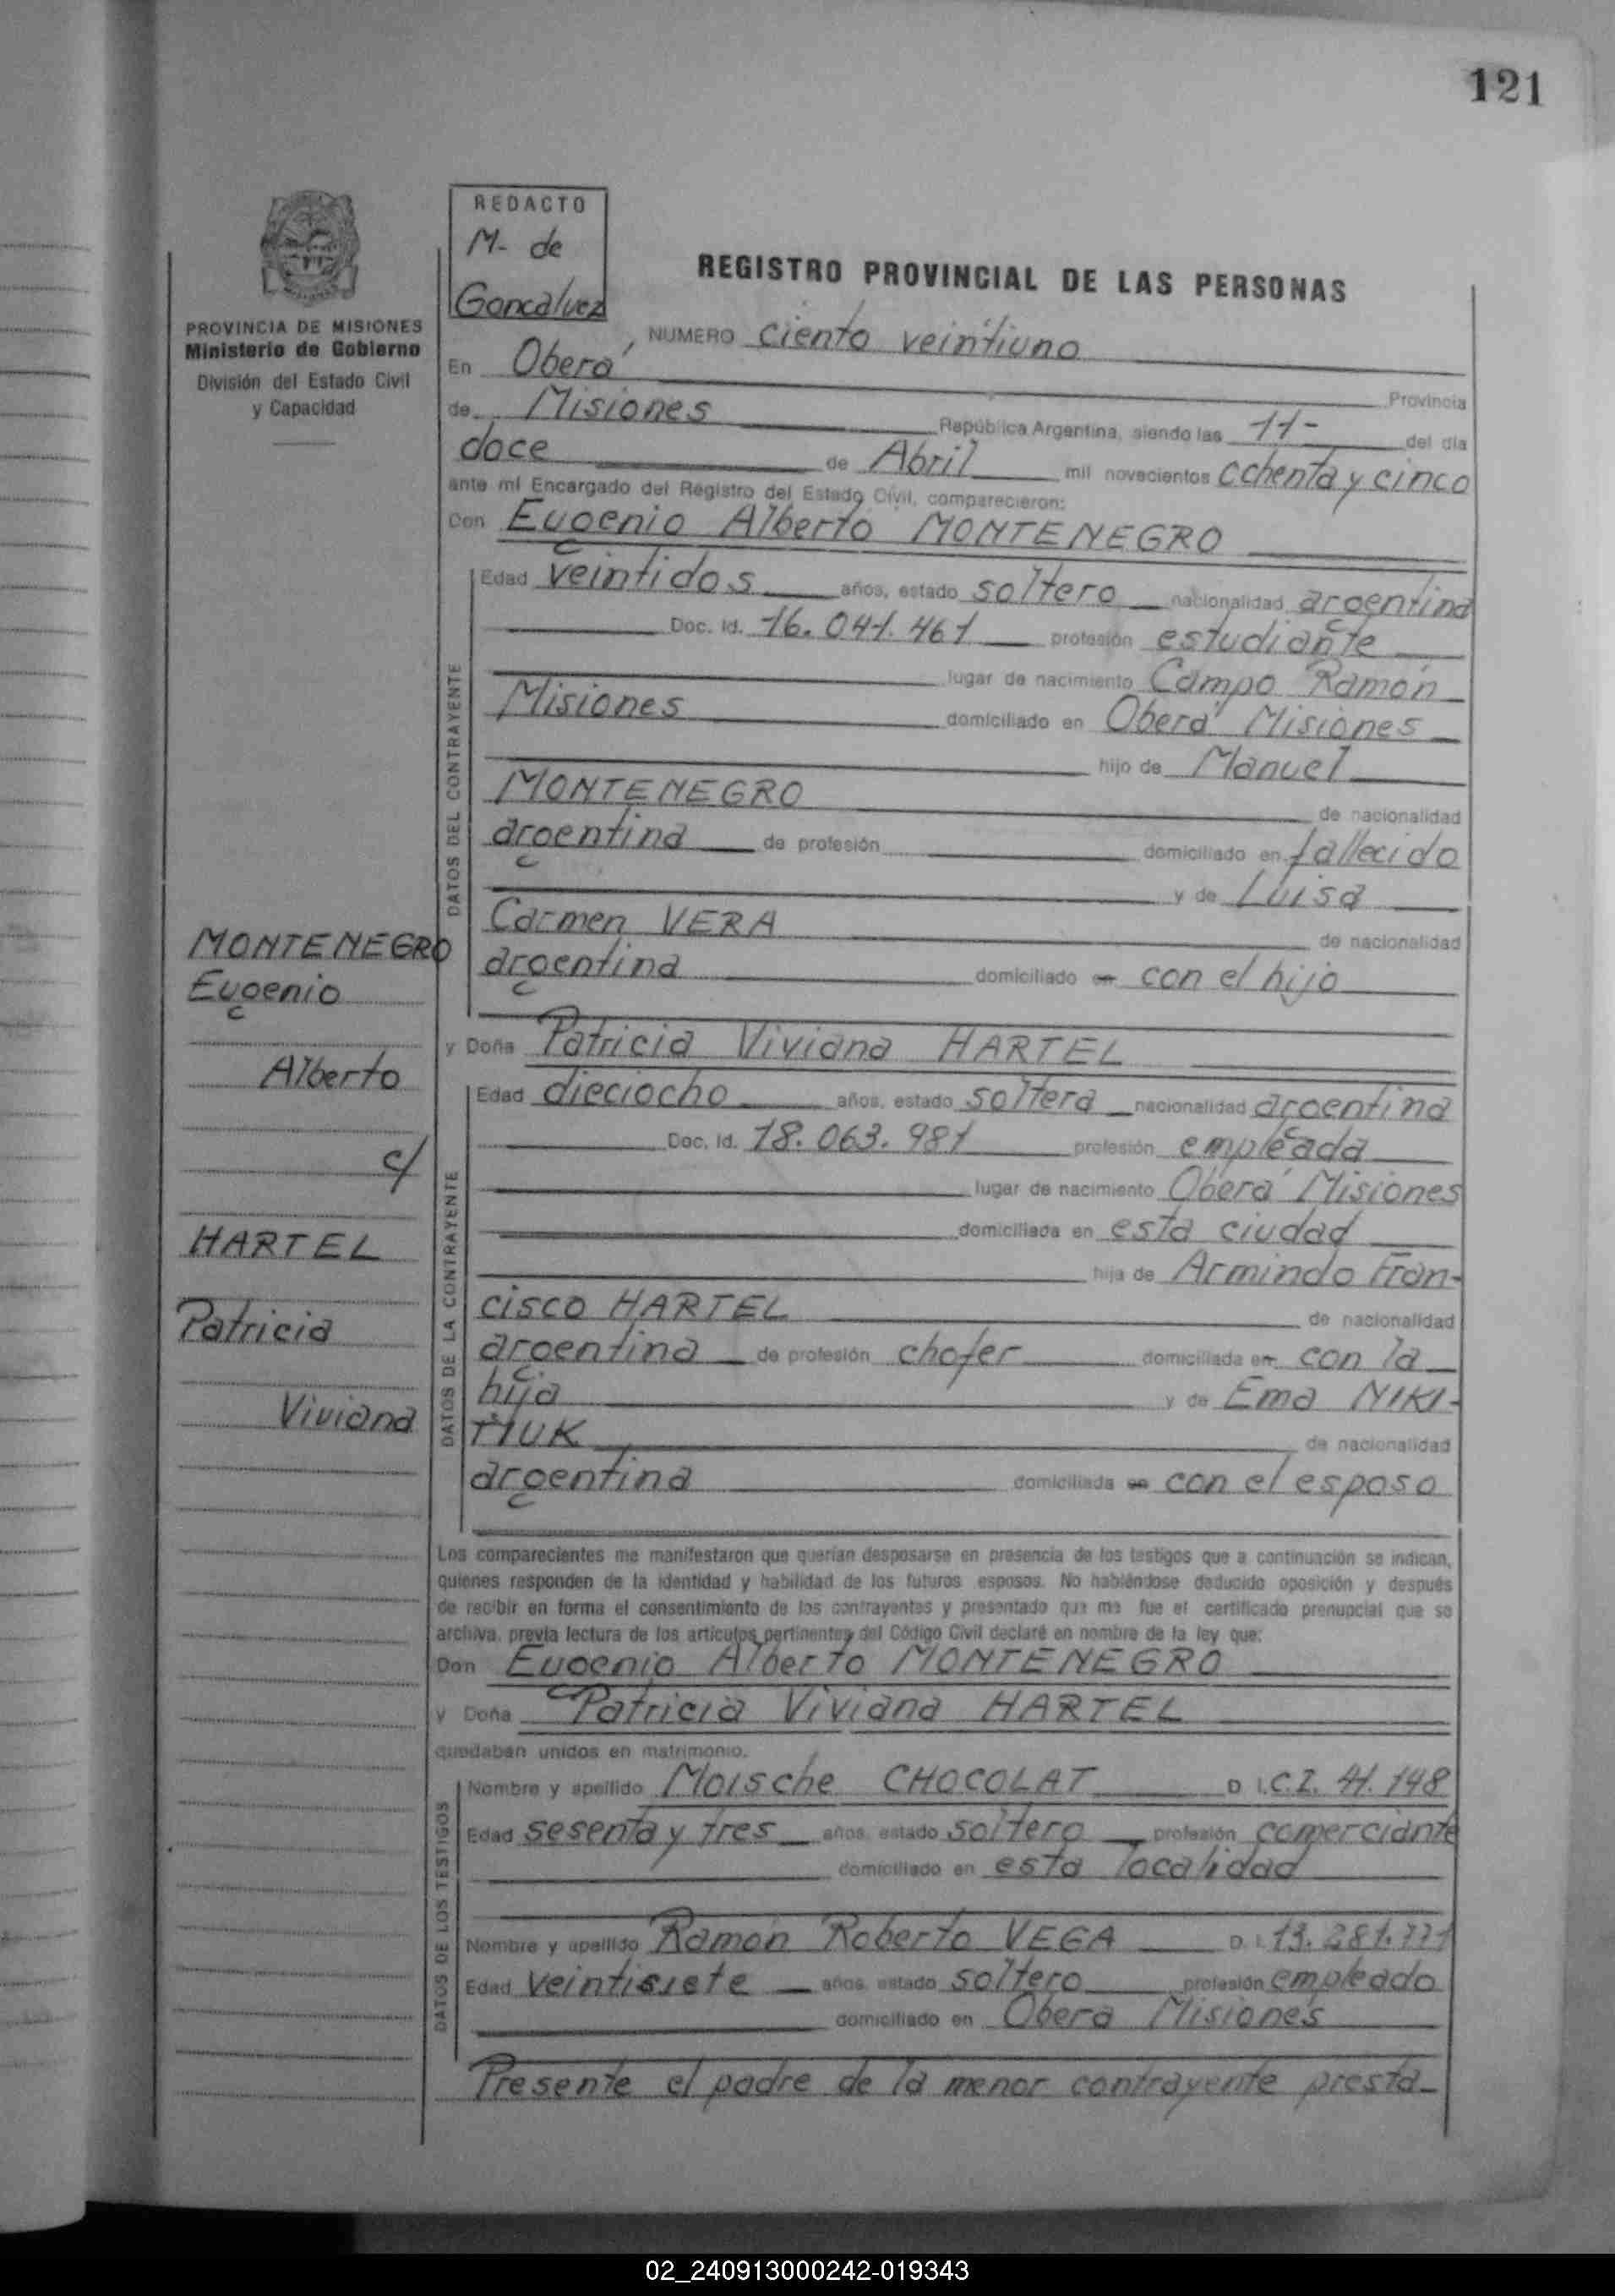 121
REDACTO
M. de
Goncalvez
REGISTRO PROVINCIAL DE LAS PERSONAS
PROVINCIA DE MISIONES
Ministerio de Gobierno
División del Estado Civil
y Capacidad
NUMERO ciento veintiuno
En Oberá Provincia
de Misiones República Argentina, siendo las 11- del día
doce de Abril mil novecientos ochenta y cinco
ante mí Encargado del Registro del Estado Civil, comparecieron:
Don Eugenio Alberto MONTENEGRO
DATOS DEL CONTRAYENTE
Edad veintidos años, estado soltero nacionalidad argentina
Doc. Id. 16.041.461 profesión estudiante
lugar de nacimiento Campo Ramón
Misiones domiciliado en Oberá Misiones
hijo de Manuel
MONTENEGRO de nacionalidad
argentina de profesión domiciliado en fallecido
y de Luisa
Carmen VERA de nacionalidad
argentina domiciliado en con el hijo
MONTENEGRO
Eugenio
Alberto
c/
HARTEL
Patricia
Viviana
y Doña Patricia Viviana HARTEL
DATOS DE LA CONTRAYENTE
Edad dieciocho años, estado soltera nacionalidad argentina
Doc. Id. 18.063.981 profesión empleada
lugar de nacimiento Oberá Misiones
domiciliada en esta ciudad
hija de Armindo Fran-
cisco HARTEL de nacionalidad
argentina de profesión chofer domiciliada en con la
hija y de Ema NIKI-
TIUK de nacionalidad
argentina domiciliada en con el esposo
Los comparecientes me manifestaron que querían desposarse en presencia de los testigos que a continuación se indican,
quienes responden de la identidad y habilidad de los futuros esposos. No habiéndose deducido oposición y después
de recibir en forma el consentimiento de los contrayentes y presentado que me fue el certificado prenupcial que se
archiva, previa lectura de los artículos pertinentes del Código Civil declaré en nombre de la ley que:
Don Eugenio Alberto MONTENEGRO
y Doña Patricia Viviana HARTEL
quedaban unidos en matrimonio.
DATOS DE LOS TESTIGOS
Nombre y apellido Moische CHOCOLAT D. I. C.I. 41.148
Edad sesenta y tres años, estado soltero profesión comerciante
domiciliado en esta localidad
Nombre y apellido Ramón Roberto VEGA D. I. 13.281.771
Edad veintisiete años, estado soltero profesión empleado
domiciliado en Oberá Misiones
Presente el padre de la menor contrayente presta-
02_240913000242-019343